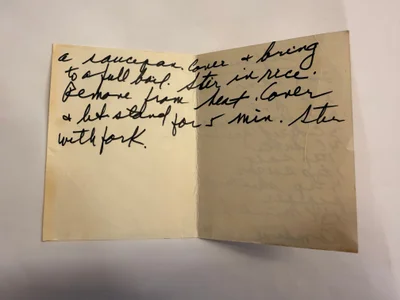 a saucepan. Cover + bring
to a full boil. Stir in rice.
Remove from heat. Cover
+ let stand for 5 min. Stir
with fork.